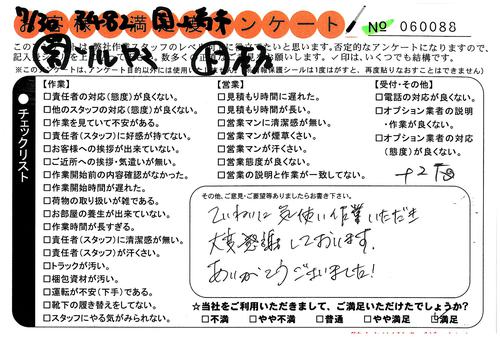 お客様満足度アンケート
No 060088
このアンケートは、弊社作業スタッフのレベル向上に役立てたいと思います。否定的なアンケートになりますので、
記入
※このアンケートは、アンケート目的以外には使用いた
保護シールは1度はがすと、再度貼りなおすことはできません)
チェックリスト
【作業】
□責任者の対応(態度)が良くない。
□他のスタッフの対応(態度)が良くない。
□作業を見ていて不安がある。
□責任者(スタッフ)に好感が持てない。
□お客様への挨拶が出来ていない。
□ご近所への挨拶・気遣いが無い。
□作業開始前の内容確認がなかった。
□作業開始時間が遅れた。
□荷物の取り扱いが雑である。
□お部屋の養生が出来ていない。
□作業時間が長すぎる。
□責任者(スタッフ)に清潔感が無い。
□責任者(スタッフ)が汗くさい。
□トラックが汚い。
□梱包資材が汚い。
□運転が不安(下手)である。
□靴下の履き替えをしてない。
□スタッフにやる気がみられない。
【営業】
□見積もり時間に遅れた。
□見積もり時間が長い。
□営業マンに清潔感が無い。
□営業マンが煙草くさい。
□営業マンが汗くさい。
□営業態度が良くない。
□営業の説明と作業が一致してない。
【受付・その他】
□電話の対応が良くない。
□オプション業者の説明
・作業が良くない。
□オプション業者の対応
(態度)が良くない。
その他、ご意見・ご要望等ありましたらお書き下さい。
ていねいに気使い作業いただき
大変感謝しております。
ありがとうございました!
☆当社をご利用いただきまして、ご満足いただけたでしょうか?
□不満 □やや不満 □普通 □やや満足 □満足